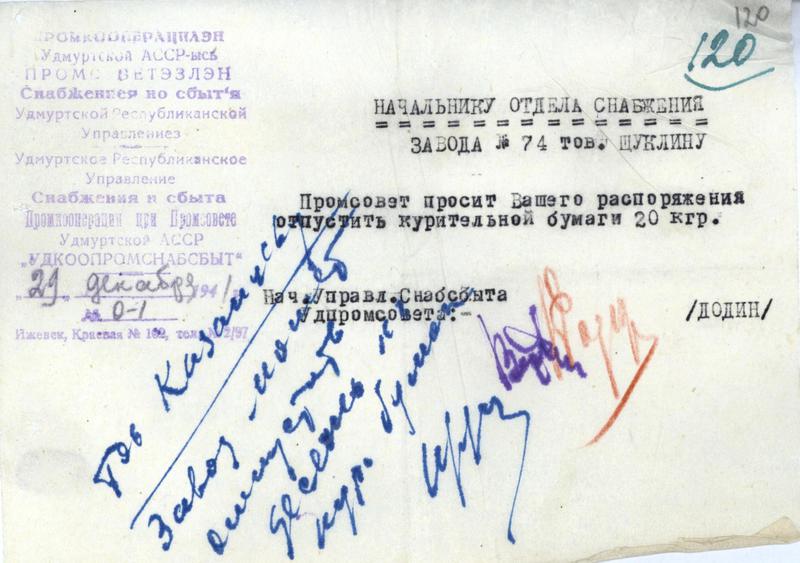 120
120
ПРОМКООПЕРАЦИАЭН
Удмуртской АССР-ысь
ПРОМС ВЕТЭЗЛЭН
Снабженнея но сбыт'я
Удмуртской Республиканской
Управлениез
Удмуртское Республиканское
Управление
Снабжения и сбыта
Промкооперации при Промсовете
Удмуртской АССР
"УДКООПРОМСНАБСБЫТ"
29 декабря 1941
№ 0-1
Ижевск, Краевая № 102, тел. № 2/97
НАЧАЛЬНИКУ ОТДЕЛА СНАБЖЕНИЯ
ЗАВОДА № 74 тов. ЩУКЛИНУ
Промсовет просит Вашего распоряжения
отпустить курительной бумаги 20 кгр.
Нач.Управл.Снабсбыта
Удпромсовета:-
/ДОДИН/
Завод может
отпустить
десять кг
кур. бумаги